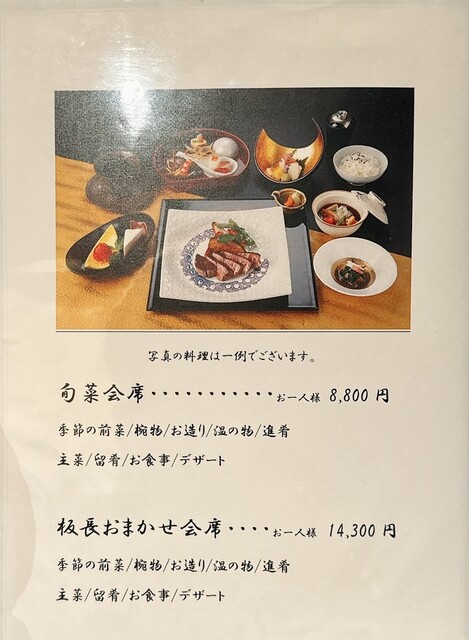 写真の料理は一例でございます。
旬菜会席・・・・・・・・・・・お一人様 8,800 円
季節の前菜/椀物/お造り/温の物/進肴
主菜/留肴/お食事/デザート
板長おまかせ会席・・・・お一人様 14,300 円
季節の前菜/椀物/お造り/温の物/進肴
主菜/留肴/お食事/デザート